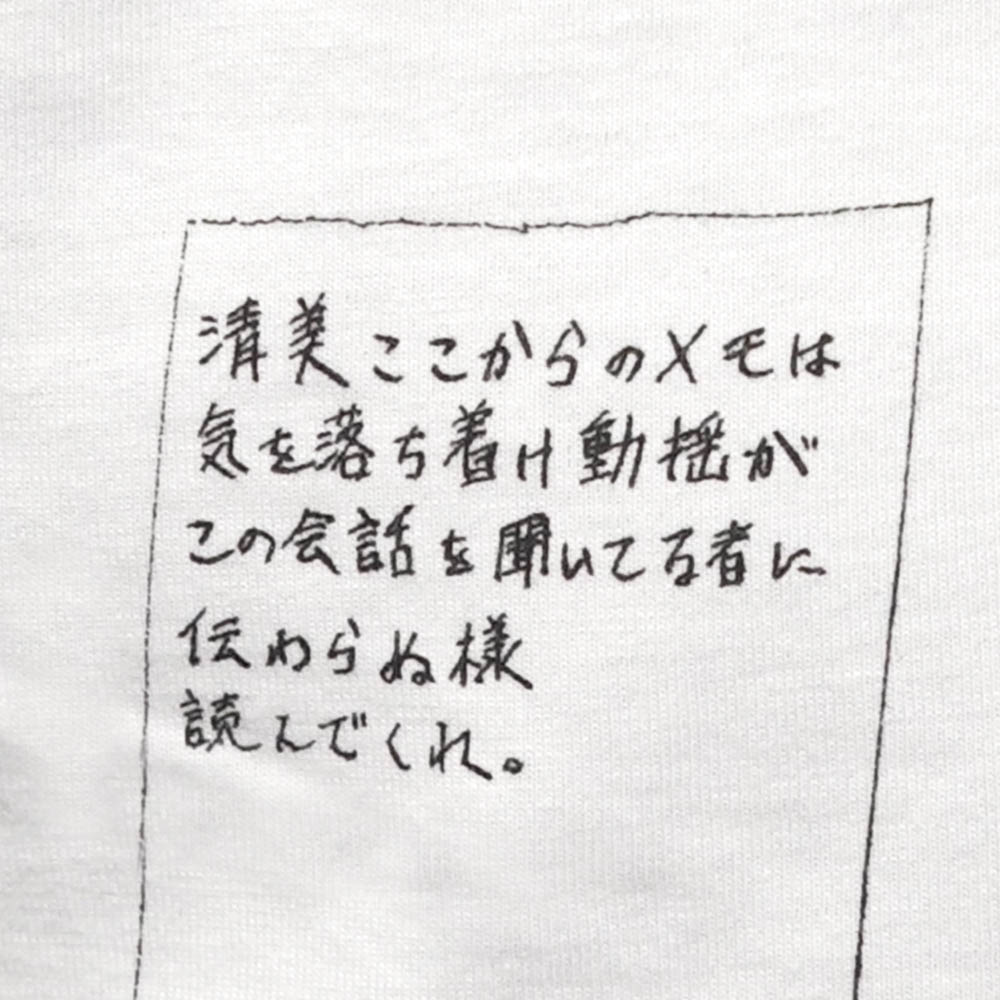 清美ここからのメモは
気を落ち着け動揺が
この会話を聞いてる者に
伝わらぬ様
読んでくれ。